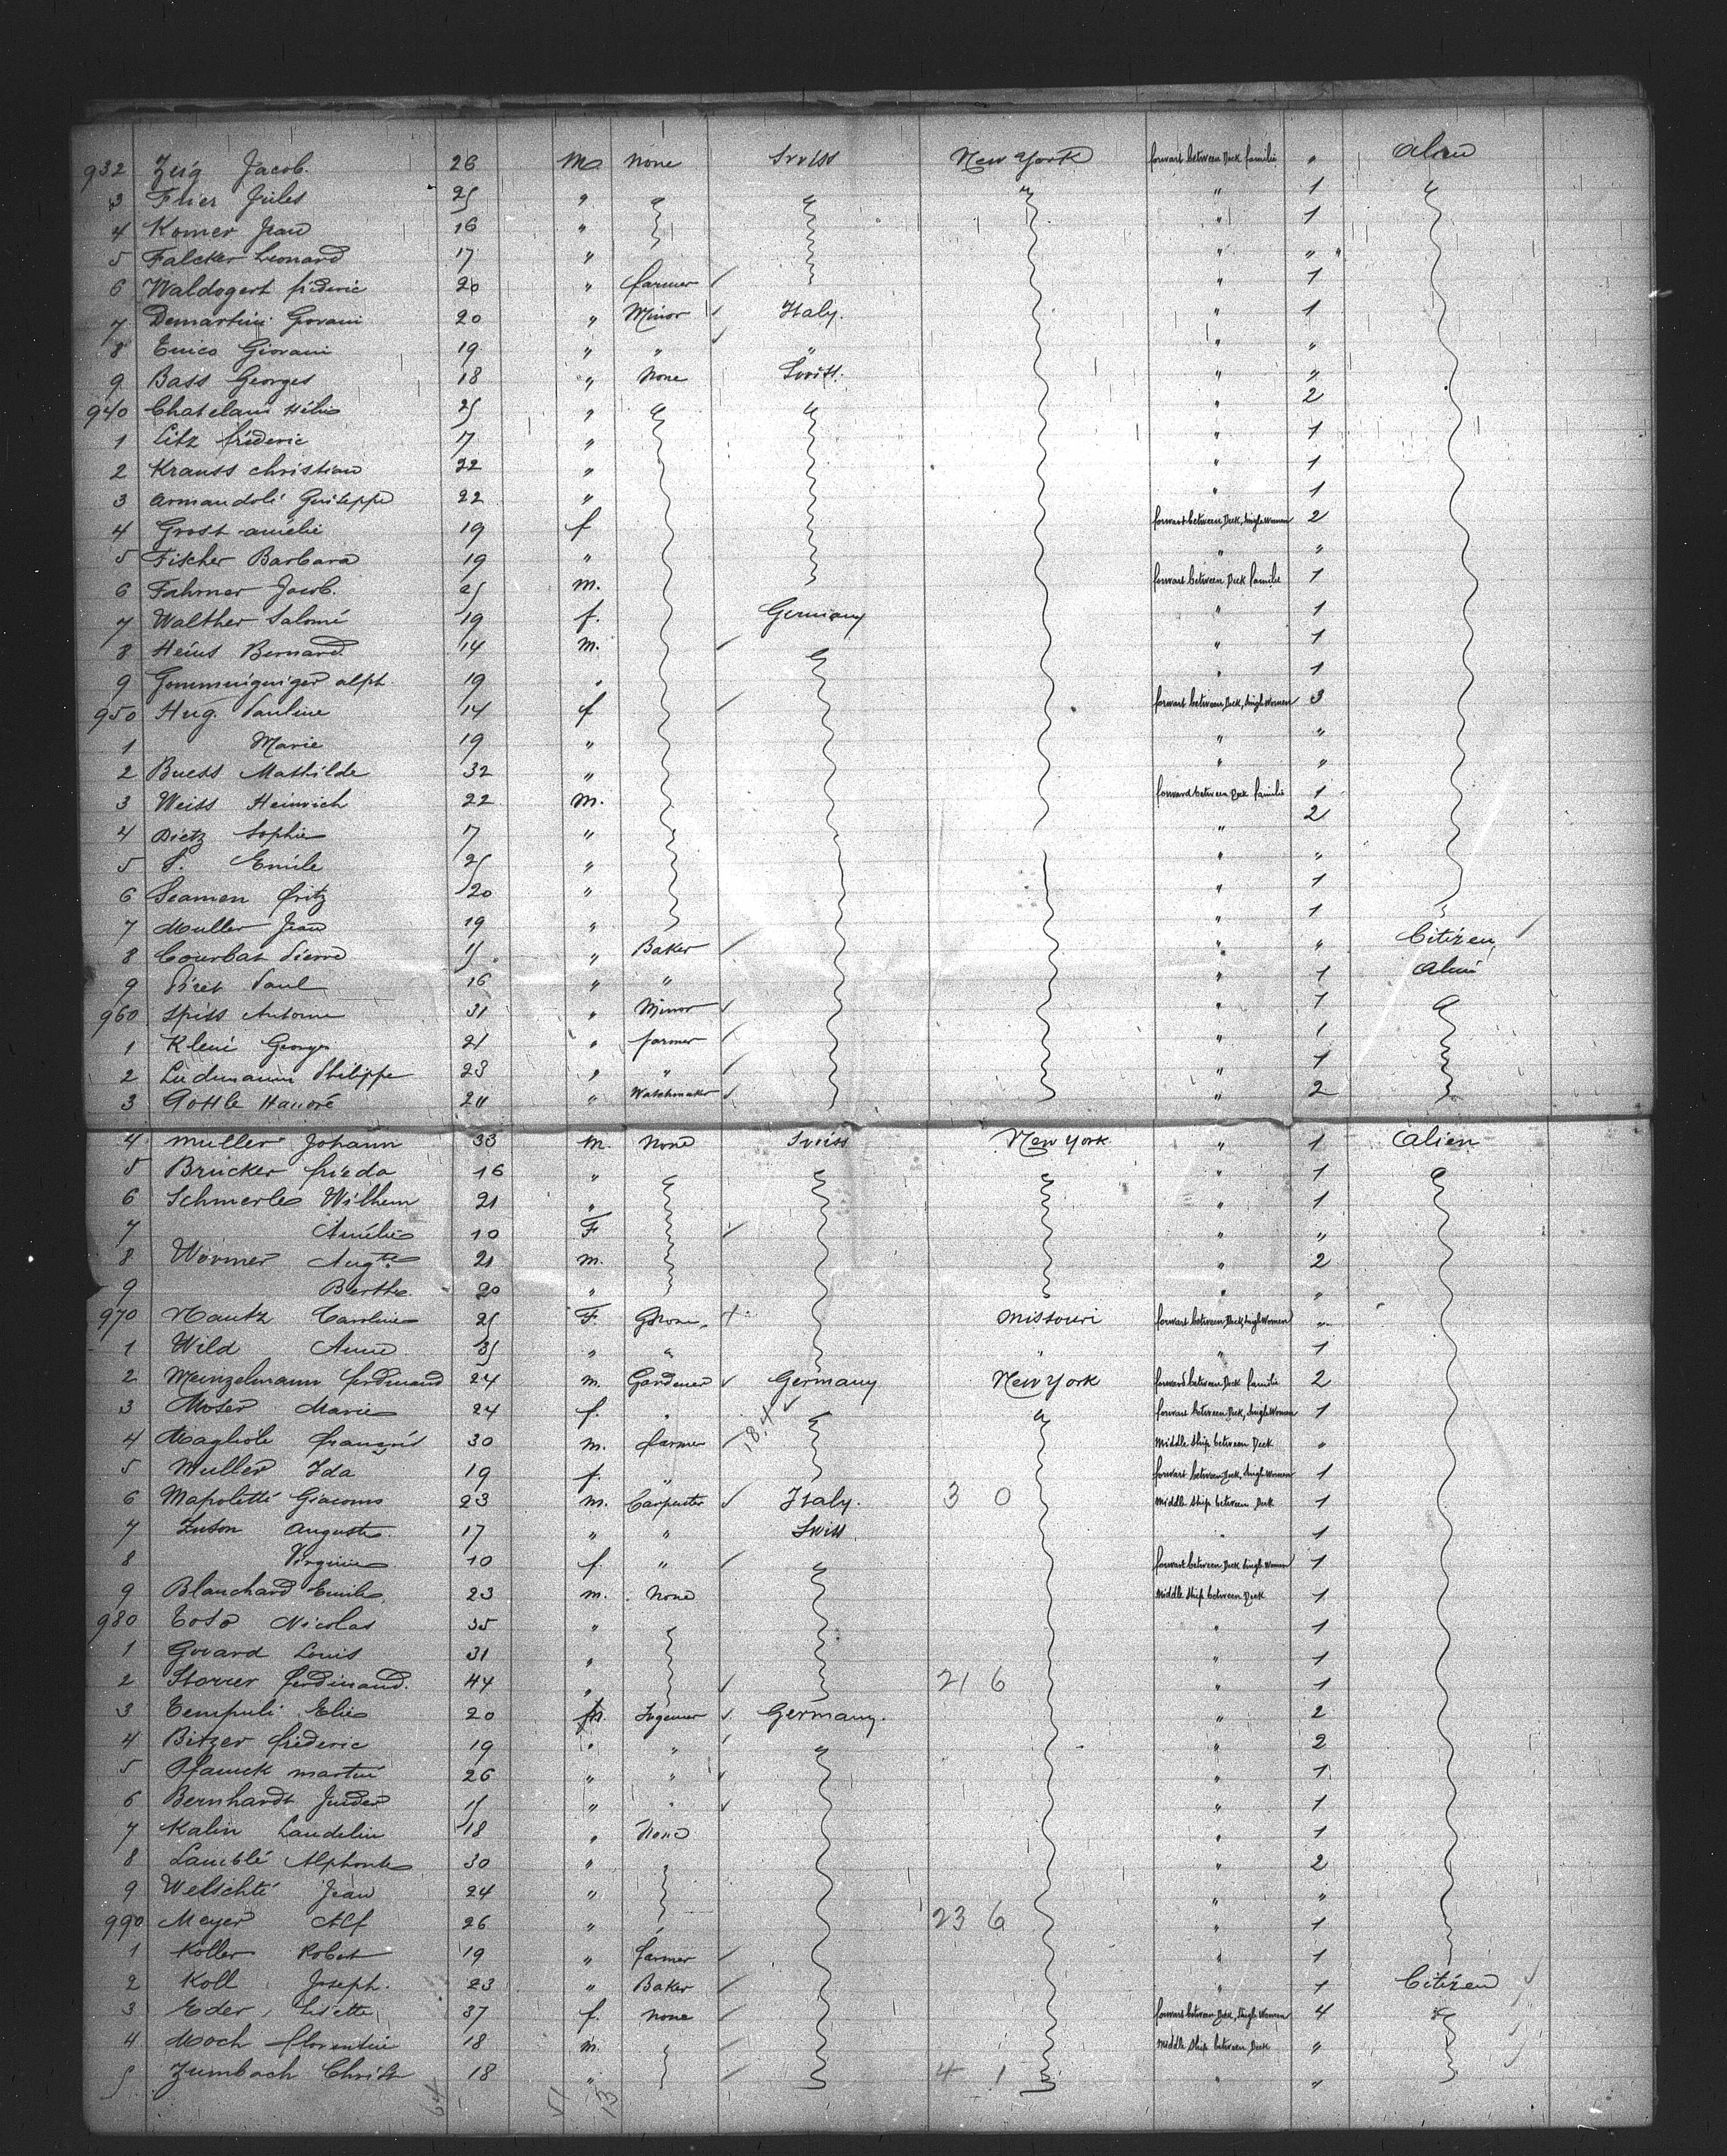 932 Zug Jacob. 26 M. none Swiss New York forwart between Deck familie " alien
3 Flier Jules 25 " " 1
4 Komer Jean 16 " " 1
5 Falcker Leonard 17 " " " "
6 Waldogert fréderic 20 " farmer " 1
7 Demartini Giovani 20 " Minor Italy. " 1
8 Enico Giovani 19 " " " " "
9 Bass Georges 18 " None Swiss. " "
940 Chatelain Hélie 25 " " 2
1 Litz fréderic 7 " " 1
2 Krauss christian 22 " " 1
3 armandoli Guiseppe 22 " " 1
4 Grost amélie 19 f forwart between Deck, Singl Women 2
5 Fischer Barbara 19 " " "
6 Fahrner Jacob. 25 m. forwart between Deck familie 1
7 Walther Salomé 19 f. Germany " 1
8 Heins Bernard 14 m. " 1
9 alph. 19 " " 1
950 Hug. Pauline 14 f forwart between Deck, Singl Women 3
1 Marie 19 " " "
2 Buess Mathilde 32 " " "
3 Weiss Heinrich 22 m. forward between Deck familie 1
4 Dietz Sophie 17 " " 2
5 D. Emile 25 " " "
6 Seamen fritz 20 " " 1
7 Muller Jean 19 " " 1
8 Courbat Pierre 15 " Baker " " Citizen
9 Piret Paul 16 " " " 1 alien
960 Spiss Antoine 31 " Minor " 1
1 Kleni Georges 21 " farmer " 1
2 Ludmann Philippe 23 " " " 1
3 Gottle Hanoré 24 " Watchmaker " 2
4 muller Johann 33 m. None Swiss New York " 1 alien
5 Brucker frieda 16 " " 1
6 Schmerle Wilhem 21 " " 1
7 Amélie 10 F " "
8 Wormer Augte 21 m. " 2
9 Berthe. 20 " " "
970 Nautz Caroline 25 F. missouri forwart between Deck, Singl Women "
1 Wild Anne 35 " " " " 1
2 Meinzelmann ferdinand 24 m. Gardener Germany New York forward between Deck familie 2
3 Moser Marie 24 f. " forwart between Deck, Singl Women 1
4 Magliole françois 30 m. farmer 18,4 Middle Ship between Deck "
5 Muller Ida 19 f. " forwart between Deck, Singl Women 1
6 Mapoletti Giacomo 23 m. Carpenter Italy. 3 0 Middle Ship between Deck 1
7 Zuson auguste 17 " " Swiss " 1
8 Virginie 10 f. " forwart between Deck Singl Women 1
9 Blanchard Emile 23 m. None Middle Ship between Deck 1
980 Toso Nicolas 35 " " 1
1 Govard Louis 31 " " 1
2 Storrer ferdinand. 44 " 21 6 " 1
3 Tempuli Elie 20 m. Ingenier Germany. " 2
4 Bitzer fréderic 19 " " " 2
5 Pfanick martin 26 " " " 1
6 Bernhardt 15 " " " 1
7 Kalin Landelin 18 " None " 1
8 Lamblé Alphonse 30 " " 2
9 Welschté Jean 24 " " "
990 Meyer Alf 26 " 23 6 " 1
1 Koller Robert 19 " farmer " 1
2 Koll Joseph. 23 " Baker " 1 Citizen
3 Eder, Lisette 37 f. none forwart between Deck, Singl Women 4 "
4 Moch florentin 18 m. Middle Ship between Deck "
5 Zumbach Christ 18 " 4 1 " "